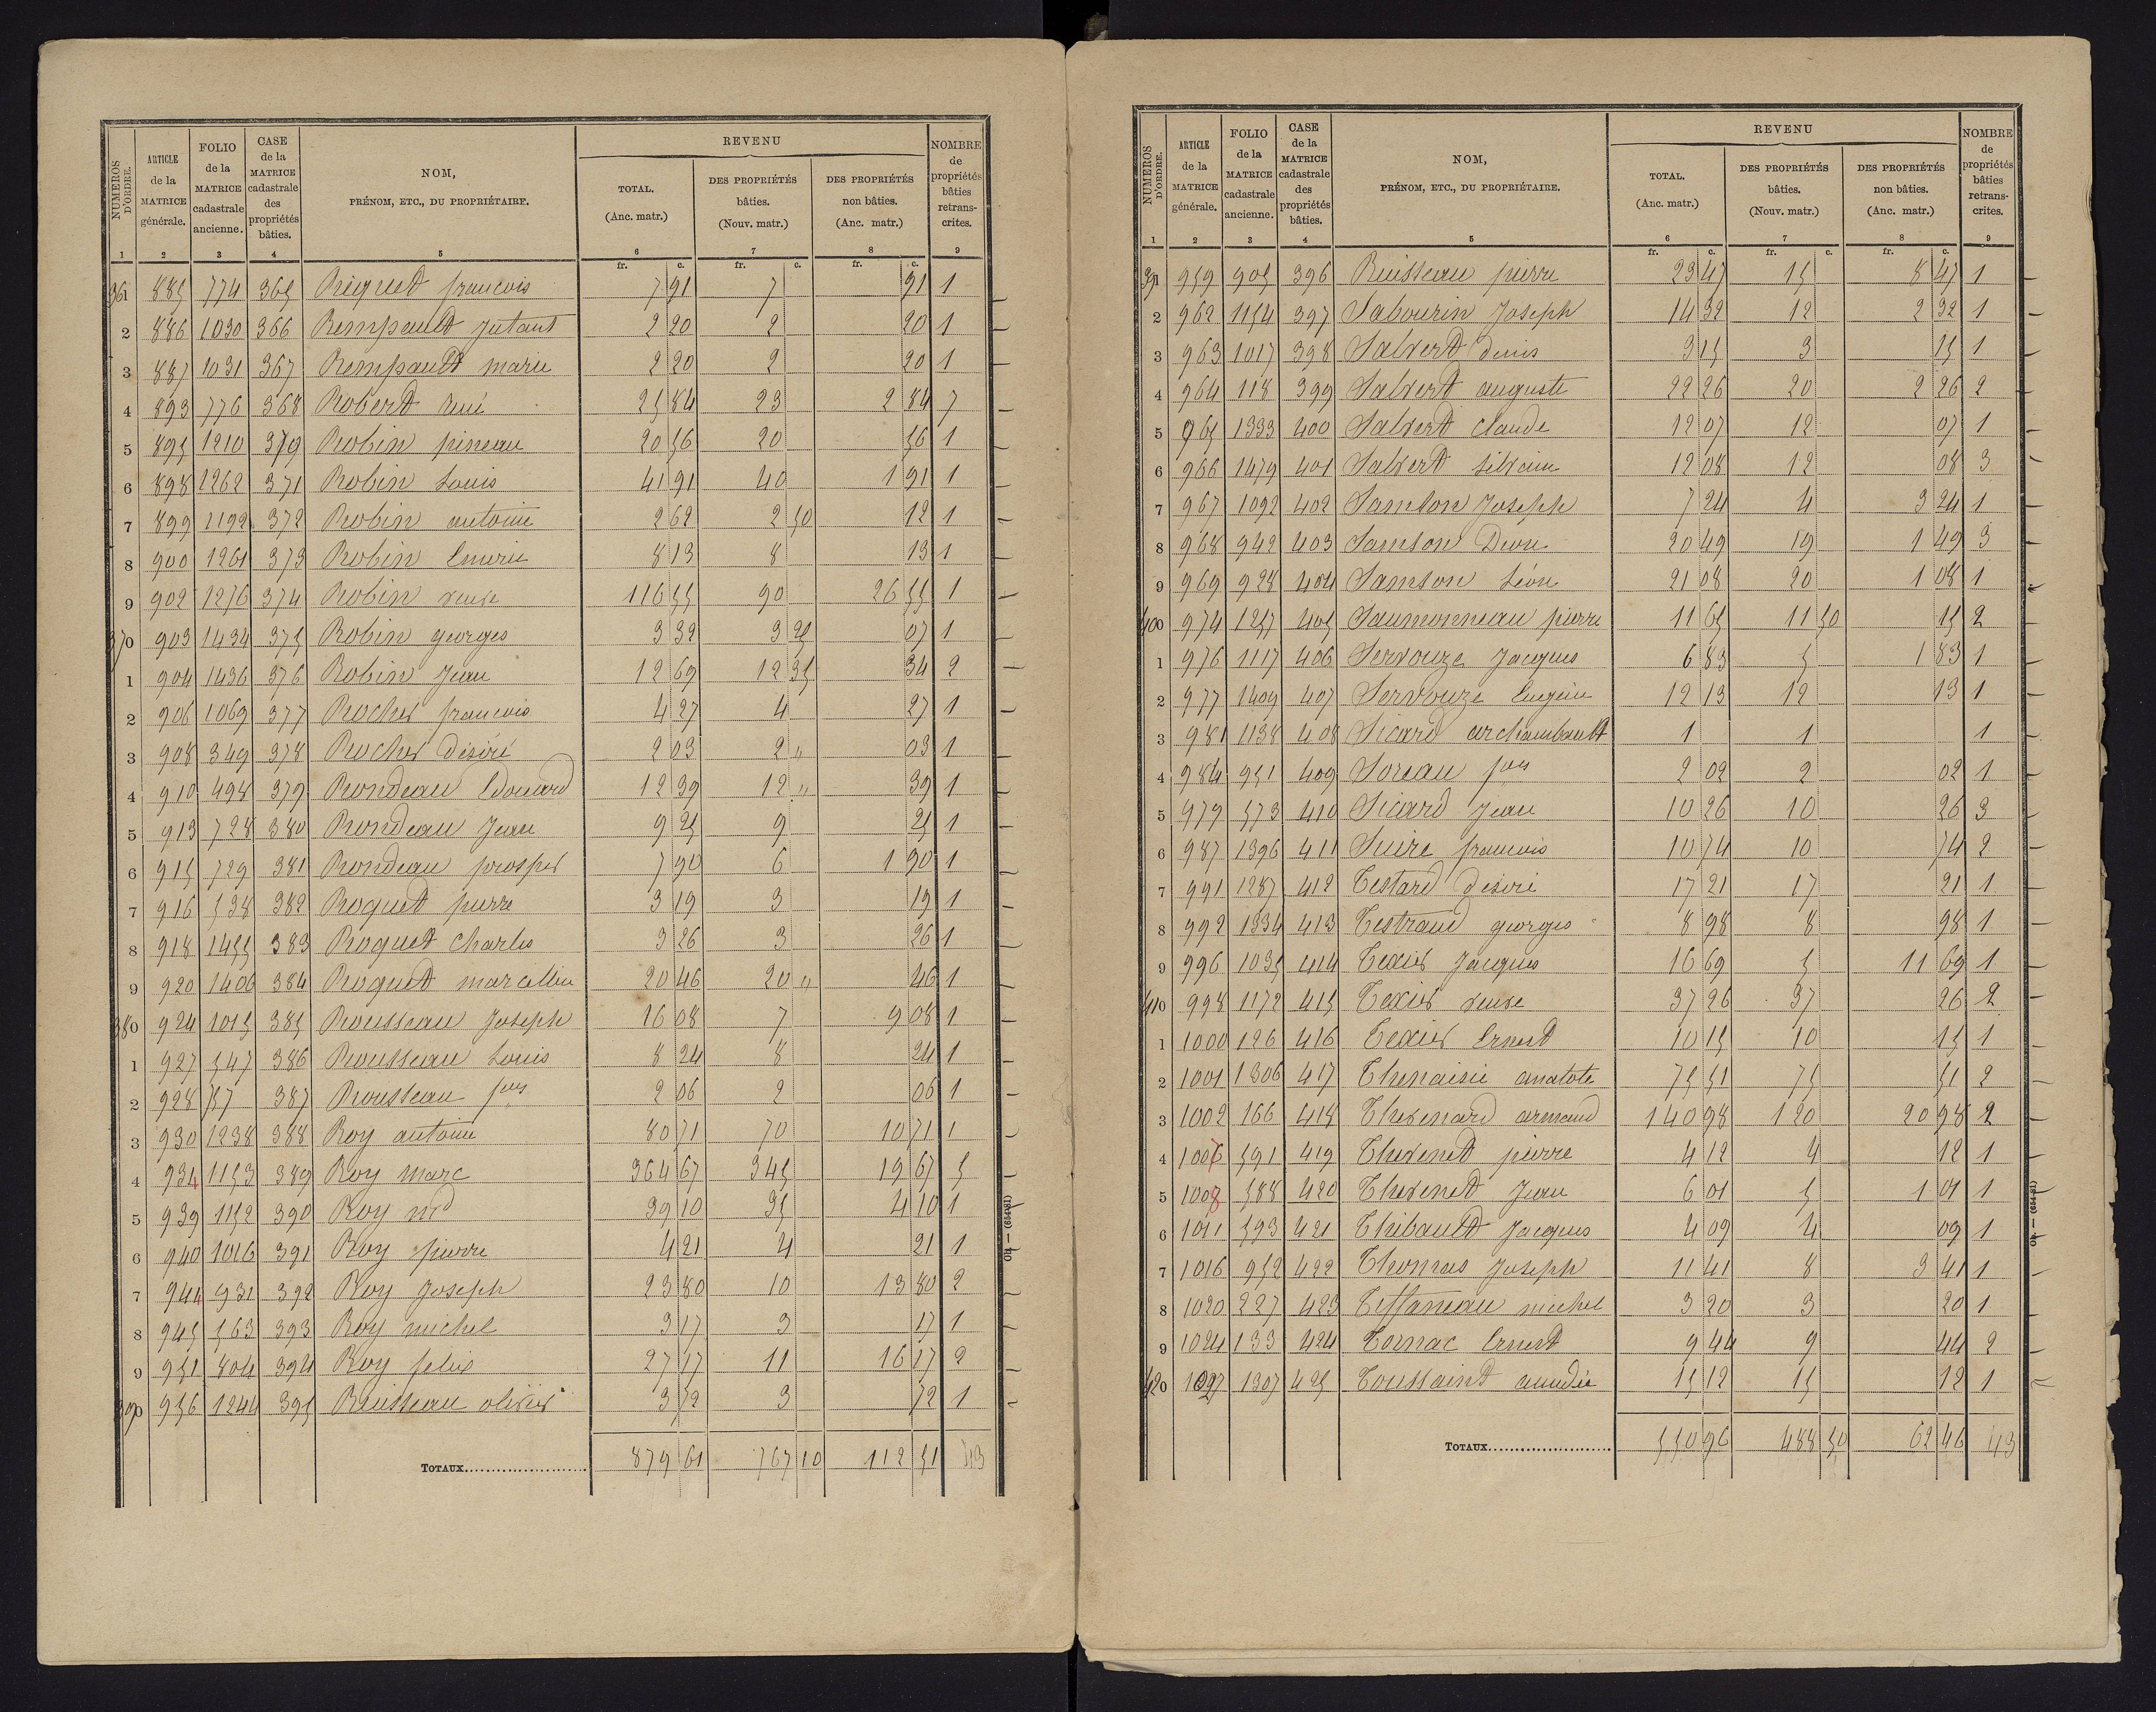 NUMÉROS D'ORDRE. | ARTICLE de la MATRICE générale. | FOLIO de la MATRICE cadastrale ancienne. | CASE de la MATRICE cadastrale des propriétés bâties. | NOM, PRÉNOM, ETC., DU PROPRIÉTAIRE. | REVENU | NOMBRE de propriétés bâties retranscrites.
TOTAL. (Anc. matr.) | DES PROPRIÉTÉS bâties. (Nouv. matr.) | DES PROPRIÉTÉS non bâties. (Anc. matr.)
1 | 2 | 3 | 4 | 5 | 6 | 7 | 8 | 9
fr. c. | fr. c. | fr. c.
361 | 885 | 774 | 365 | Riquet francois | 7 91 | 7 | 91 | 1
2 | 886 | 1030 | 366 | Rempault jutant | 2 20 | 2 | 20 | 1
3 | 887 | 1031 | 367 | Rempault marie | 2 20 | 2 | 20 | 1
4 | 893 | 776 | 368 | Robert René | 25 84 | 23 | 2 84 | 7
5 | 895 | 1210 | 379 | Robin pineau | 20 56 | 20 | 56 | 1
6 | 898 | 1262 | 371 | Robin Louis | 41 91 | 40 | 1 91 | 1
7 | 899 | 1192 | 372 | Robin antoine | 2 62 | 2 50 | 12 | 1
8 | 900 | 1261 | 373 | Robin Emerie | 8 13 | 8 | 13 | 1
9 | 902 | 1276 | 374 | Robin veuve | 116 55 | 90 | 26 55 | 1
370 | 903 | 1434 | 375 | Robin georges | 3 32 | 3 25 | 07 | 1
1 | 904 | 1436 | 376 | Robin Jean | 12 69 | 12 35 | 34 | 2
2 | 906 | 1069 | 377 | Rocher francois | 4 27 | 4 | 27 | 1
3 | 908 | 349 | 378 | Rocher désiré | 2 03 | 2 " | 03 | 1
4 | 910 | 498 | 379 | Rondeau Edouard | 12 39 | 12 " | 39 | 1
5 | 913 | 728 | 380 | Rondeau Jean | 9 25 | 9 | 25 | 1
6 | 915 | 729 | 381 | Rondeau prosper | 7 90 | 6 | 1 90 | 1
7 | 916 | 538 | 382 | Roquet pierre | 3 19 | 3 | 19 | 1
8 | 918 | 1455 | 383 | Roquet Charles | 3 26 | 3 | 26 | 1
9 | 920 | 1406 | 384 | Roquet marcellin | 20 46 | 20 " | 46 | 1
380 | 924 | 1015 | 385 | Rousseau Joseph | 16 08 | 7 | 9 08 | 1
1 | 927 | 547 | 386 | Rousseau Louis | 8 24 | 8 | 24 | 1
2 | 928 | 757 | 387 | Rousseau fcis | 2 06 | 2 | 06 | 1
3 | 930 | 1238 | 388 | Roy antoine | 80 71 | 70 | 10 71 | 1
4 | 934 | 1153 | 389 | Roy Marc | 364 67 | 345 | 19 67 | 5
5 | 939 | 1152 | 390 | Roy nd | 39 10 | 35 | 4 10 | 1
6 | 940 | 1016 | 391 | Roy pierre | 4 21 | 4 | 21 | 1
7 | 944 | 931 | 392 | Roy Joseph | 23 80 | 10 | 13 80 | 2
8 | 945 | 563 | 393 | Roy michel | 3 17 | 3 | 17 | 1
9 | 951 | 804 | 394 | Roy felix | 27 17 | 11 | 16 17 | 2
390 | 956 | 1244 | 395 | Ruisseau olivier | 3 72 | 3 | 72 | 1
TOTAUX | 879 61 | 767 10 | 112 51 | 43
OH — (654-81)
NUMÉROS D'ORDRE. | ARTICLE de la MATRICE générale. | FOLIO de la MATRICE cadastrale ancienne. | CASE de la MATRICE cadastrale des propriétés bâties. | NOM, PRÉNOM, ETC., DU PROPRIÉTAIRE. | REVENU | NOMBRE de propriétés bâties retranscrites.
TOTAL. (Anc. matr.) | DES PROPRIÉTÉS bâties. (Nouv. matr.) | DES PROPRIÉTÉS non bâties. (Anc. matr.)
1 | 2 | 3 | 4 | 5 | 6 | 7 | 8 | 9
fr. c. | fr. c. | fr. c.
391 | 959 | 905 | 396 | Ruisseau pierre | 23 47 | 15 | 8 47 | 1
2 | 962 | 1154 | 397 | Sabourin Joseph | 14 32 | 12 | 2 32 | 1
3 | 963 | 1017 | 398 | Salvert denis | 3 15 | 3 | 15 | 1
4 | 964 | 118 | 399 | Salvert auguste | 22 26 | 20 | 2 26 | 2
5 | 965 | 1333 | 400 | Salvert claude | 12 07 | 12 | 07 | 1
6 | 966 | 1479 | 401 | Salvert silvain | 12 08 | 12 | 08 | 3
7 | 967 | 1092 | 402 | Samson Joseph | 7 24 | 4 | 3 24 | 1
8 | 968 | 942 | 403 | Samson Dion | 20 49 | 19 | 1 49 | 3
9 | 969 | 928 | 404 | Samson Léon | 21 08 | 20 | 1 08 | 1
400 | 974 | 1257 | 405 | Saumonneau pierre | 11 65 | 11 50 | 15 | 2
1 | 976 | 1117 | 406 | Servouze Jacques | 6 83 | 5 | 1 83 | 1
2 | 977 | 1409 | 407 | Servouze Eugène | 12 13 | 12 | 13 | 1
3 | 981 | 1138 | 408 | Sicard archambault | 1 | 1 | | 1
4 | 984 | 951 | 409 | Soreau fcis | 2 02 | 2 | 02 | 1
5 | 979 | 573 | 410 | Sicard Jean | 10 26 | 10 | 26 | 3
6 | 987 | 1396 | 411 | Suire francois | 10 74 | 10 | 74 | 2
7 | 991 | 1287 | 412 | Testard desiré | 17 21 | 17 | 21 | 1
8 | 992 | 1334 | 413 | Testraud georges | 8 98 | 8 | 98 | 1
9 | 996 | 1035 | 414 | Texier Jacques | 16 69 | 5 | 11 69 | 1
410 | 998 | 1172 | 415 | Texier veuve | 37 26 | 37 | 26 | 2
1 | 1000 | 126 | 416 | Texier Ernest | 10 15 | 10 | 15 | 1
2 | 1001 | 1306 | 417 | Thenaisie anatote | 75 51 | 75 | 51 | 2
3 | 1002 | 166 | 418 | Thevenard armand | 140 98 | 120 | 20 98 | 2
4 | 1007 | 591 | 419 | Thevenet pierre | 4 12 | 4 | 12 | 1
5 | 1008 | 588 | 420 | Thevenet Jean | 6 01 | 5 | 1 01 | 1
6 | 1011 | 593 | 421 | Thibault Jacques | 4 09 | 4 | 09 | 1
7 | 1016 | 952 | 422 | Thomas Joseph | 11 41 | 8 | 3 41 | 1
8 | 1020 | 227 | 423 | Tiffaneau michel | 3 20 | 3 | 20 | 1
9 | 1024 | 133 | 424 | Tornac Ernest | 9 44 | 9 | 44 | 2
420 | 1027 | 1307 | 425 | Toussaint amedée | 15 12 | 15 | 12 | 1
TOTAUX | 550 96 | 488 50 | 62 46 | 43
OH — (654-81)